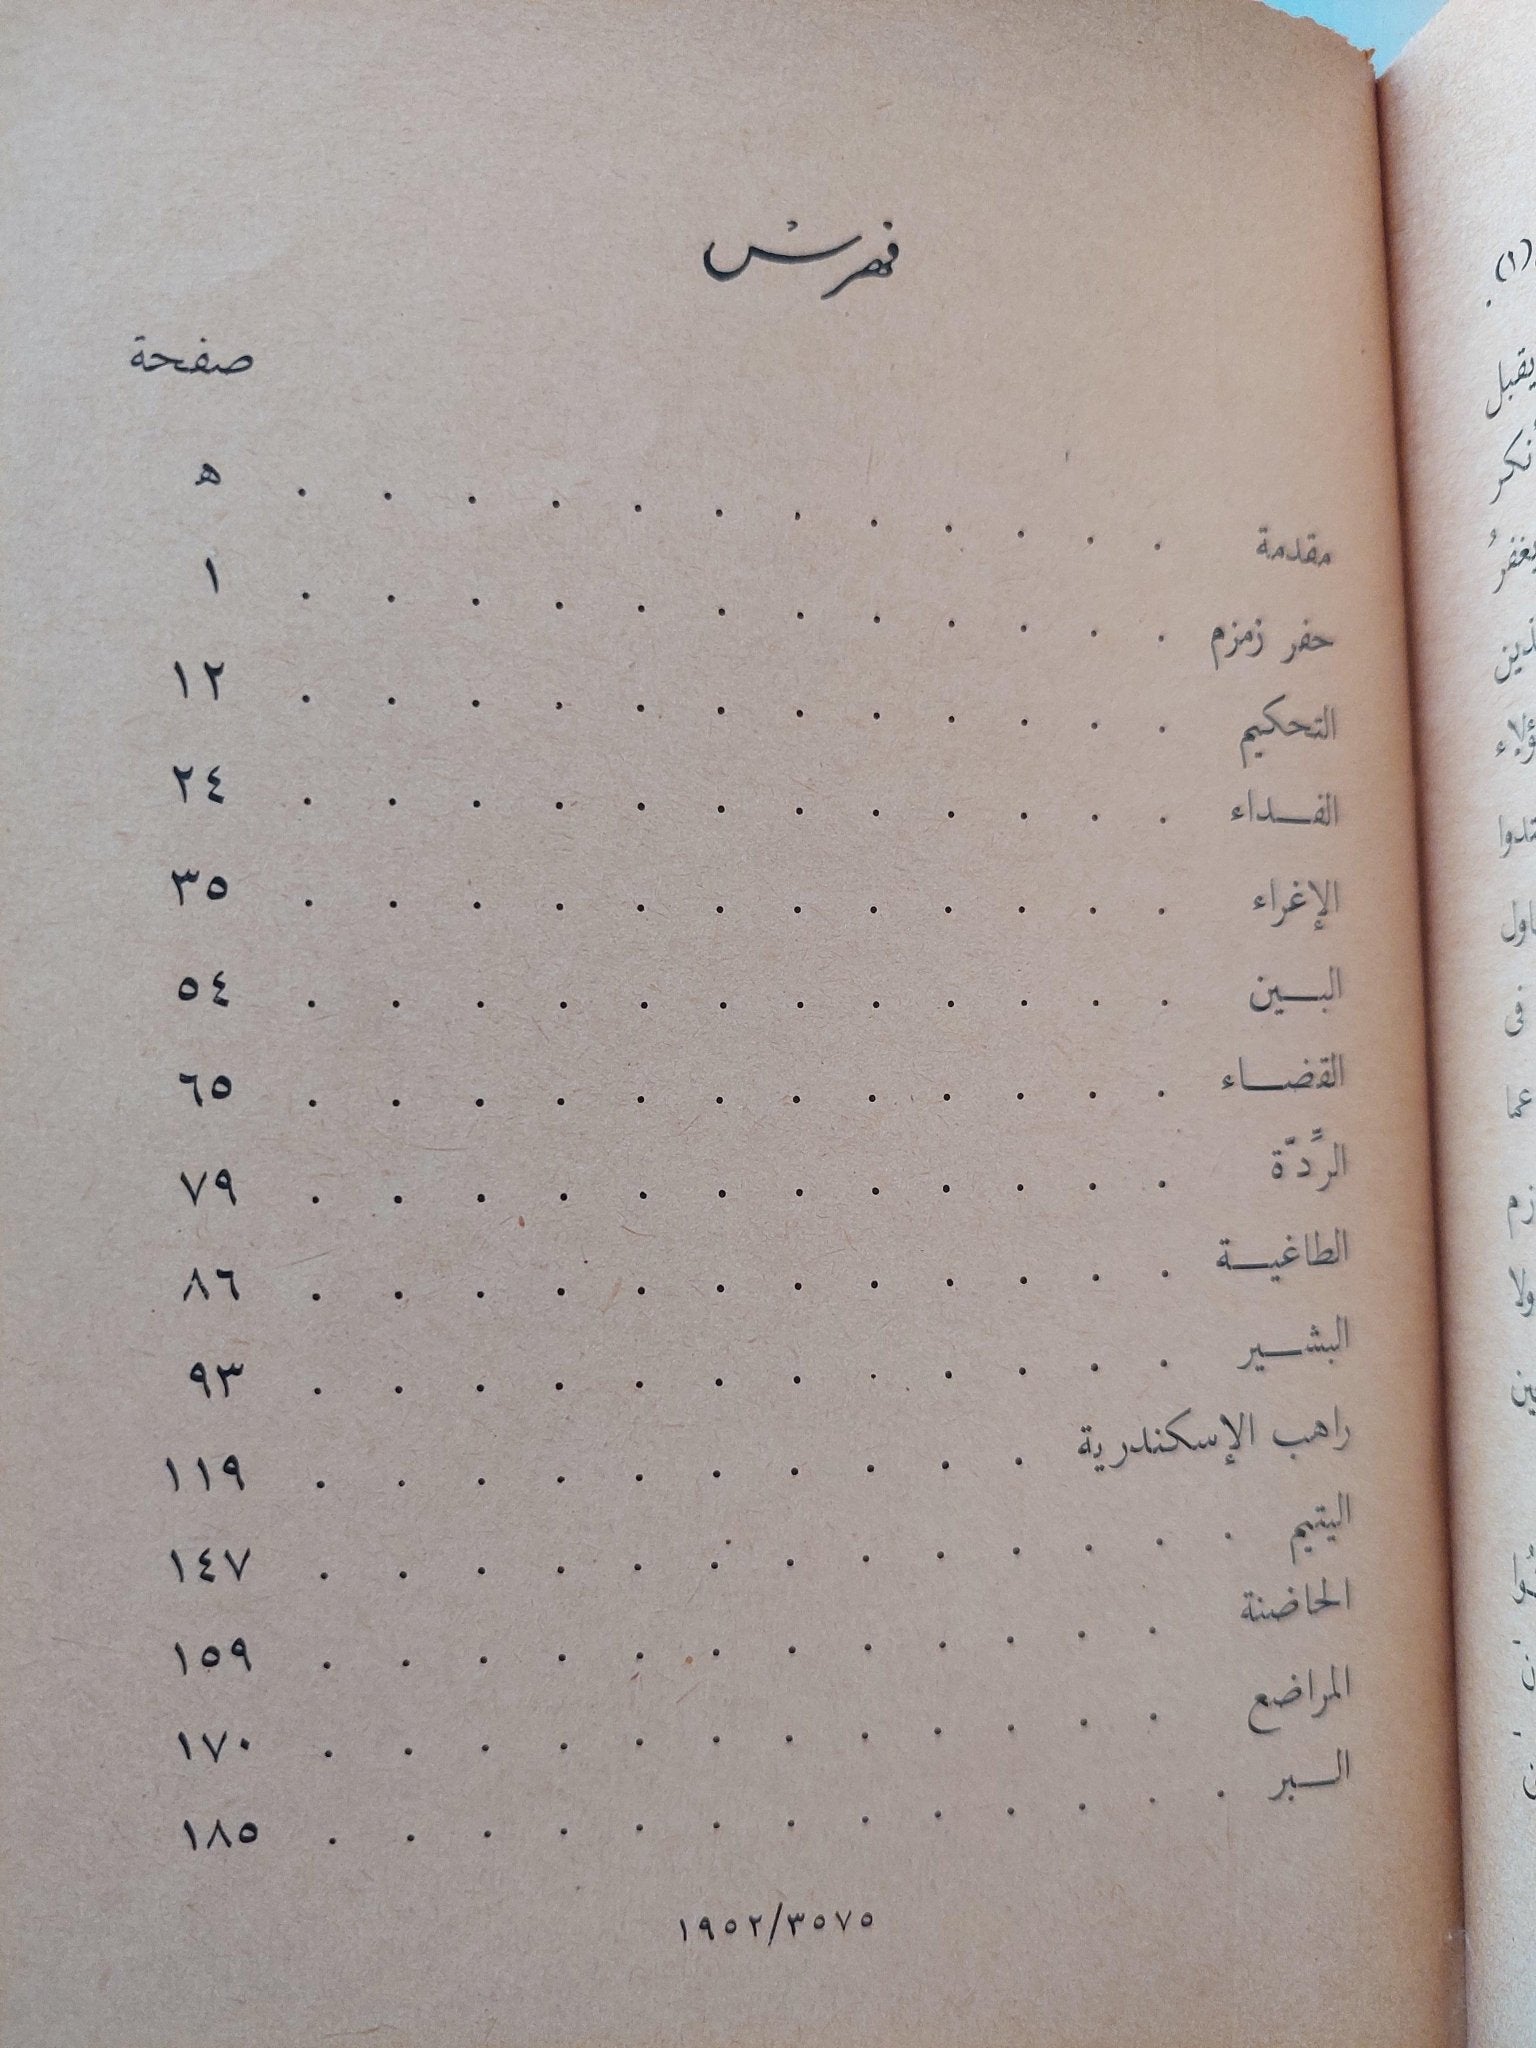 فهرس
صفحة
مقدمة . . . . . . . . . . . . ه
حفر زمزم . . . . . . . . . . . . ١
التحكيم . . . . . . . . . . . . ١٢
الفداء . . . . . . . . . . . . ٢٤
الإغراء . . . . . . . . . . . . ٣٥
البين . . . . . . . . . . . . ٥٤
القضاء . . . . . . . . . . . . ٦٥
الرَّدّة . . . . . . . . . . . . ٧٩
الطاغية . . . . . . . . . . . . ٨٦
البشير . . . . . . . . . . . . ٩٣
راهب الإسكندرية . . . . . . . . . . ١١٩
اليتيم . . . . . . . . . . . . . ١٤٧
الحاضنة . . . . . . . . . . . . ١٥٩
المراضع . . . . . . . . . . . . ١٧٠
البر . . . . . . . . . . . . . ١٨٥
١٩٥٢/٣٥٧٥
(١)
يقبل
في
عما
ولا